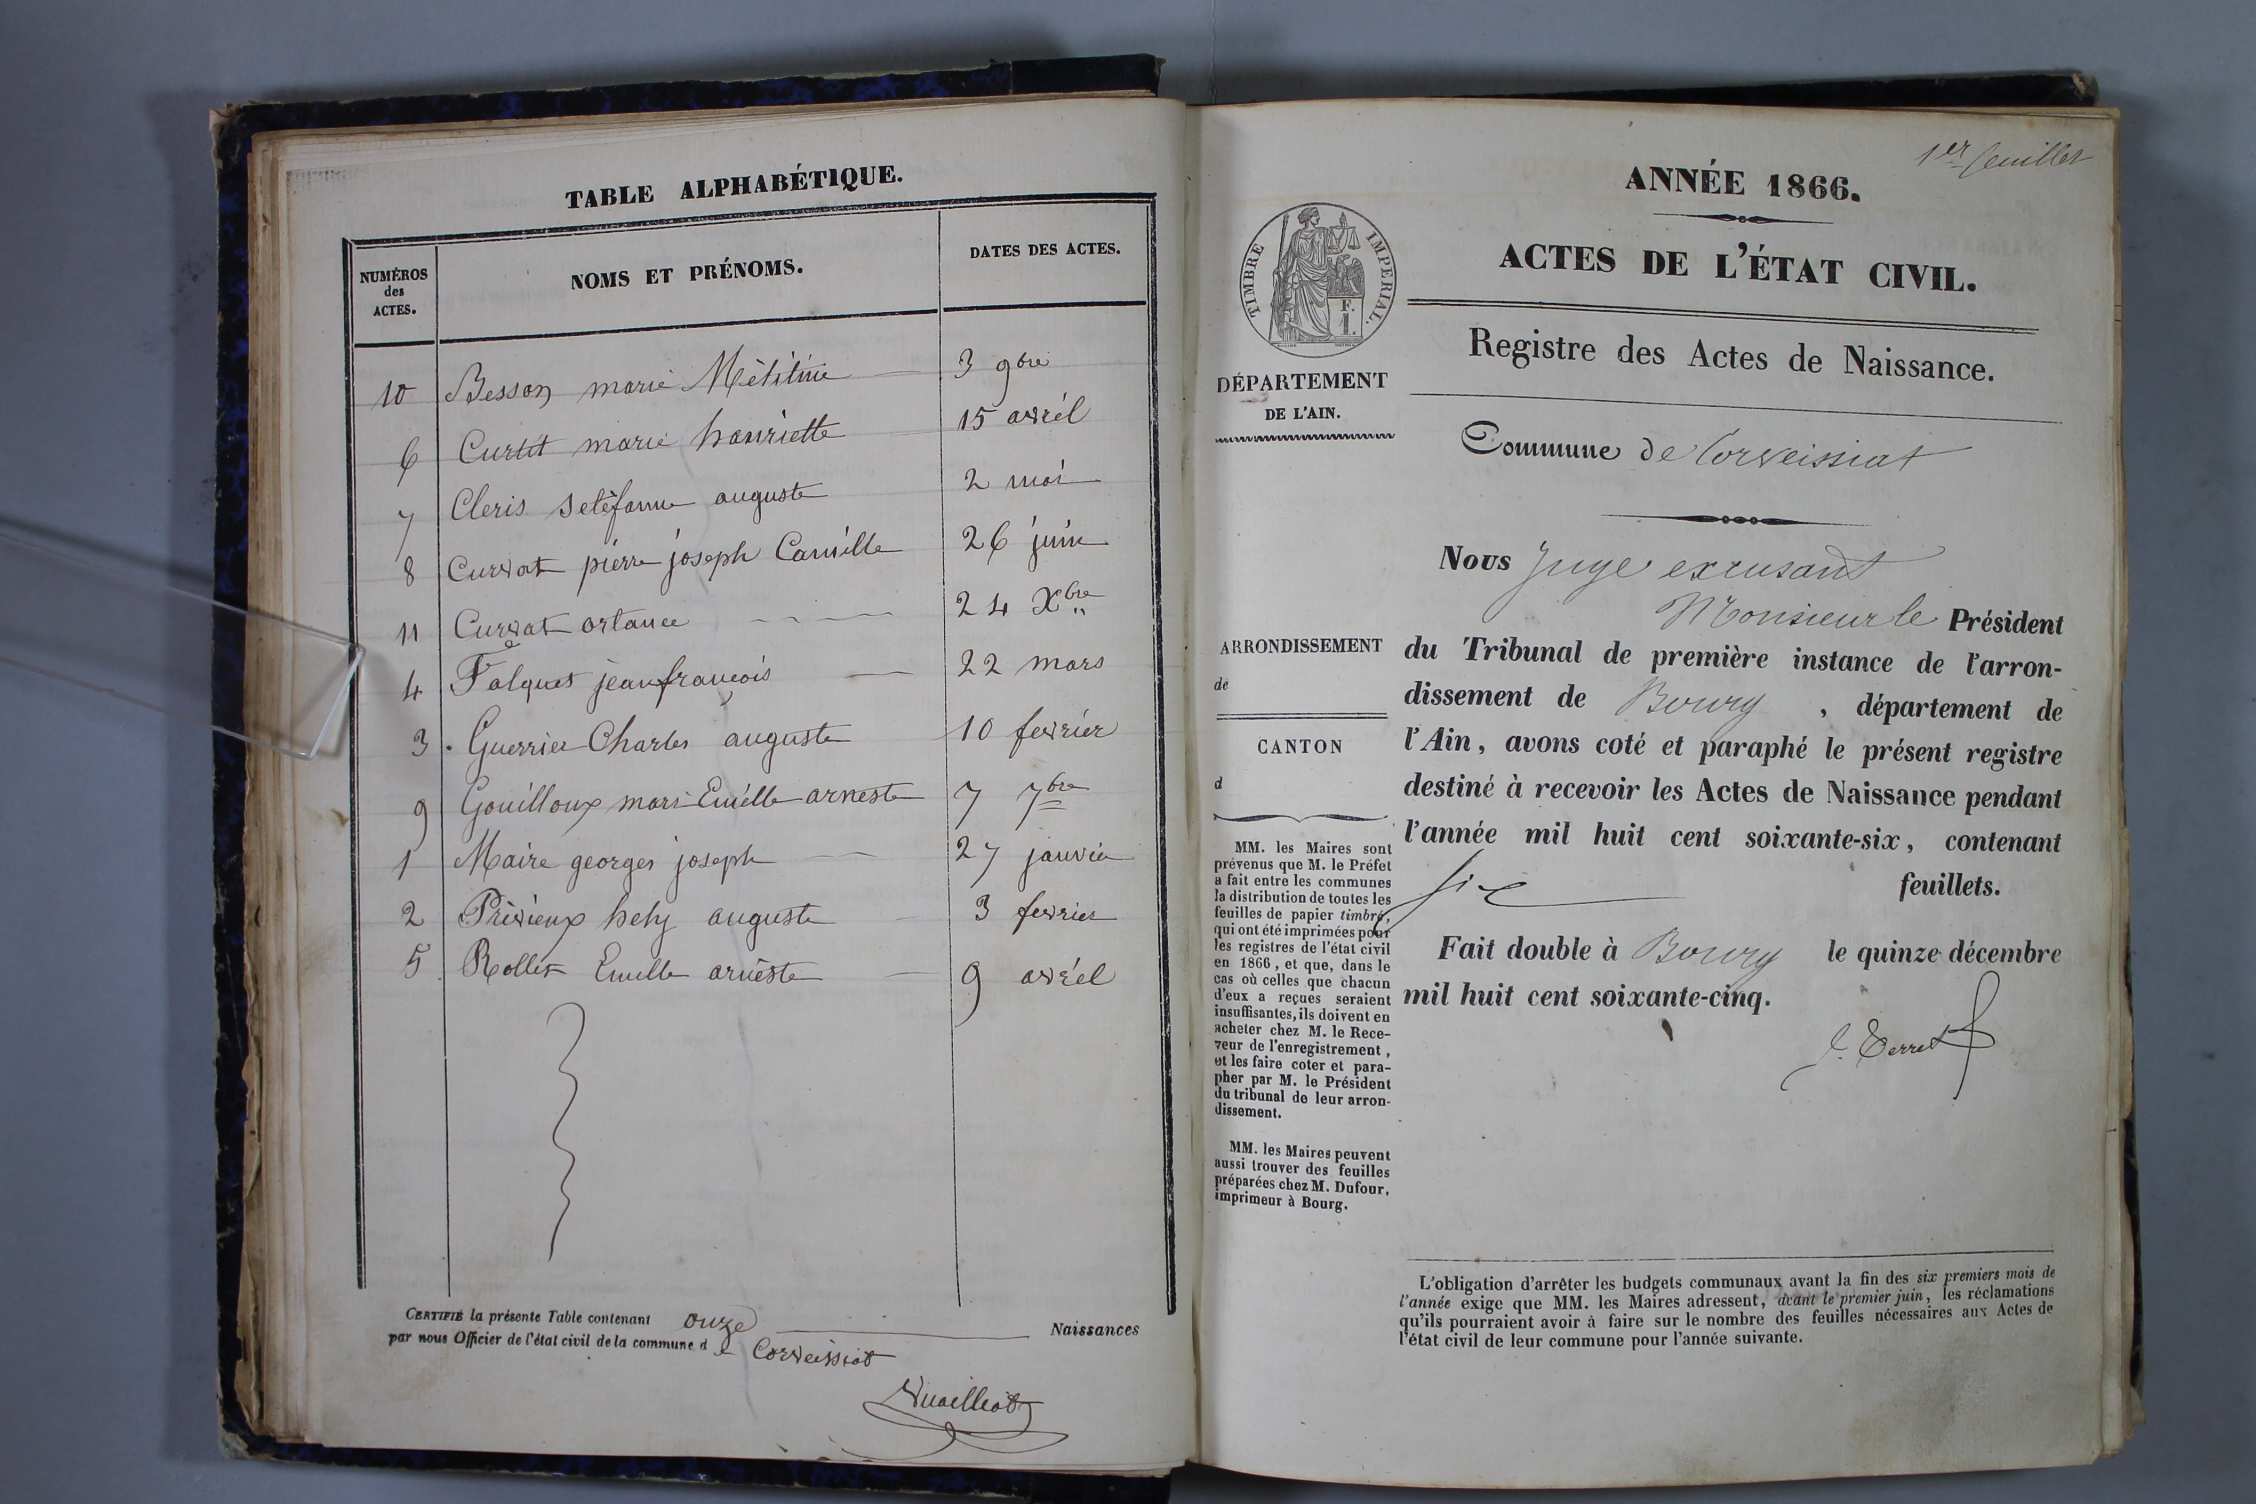 TABLE ALPHABÉTIQUE.
NUMÉROS des ACTES.
NOMS ET PRÉNOMS.
DATES DES ACTES.
10 Besson marie Mélitine 3 9bre
6 Curtet marie hanriette 15 avrél
7 Cleris auguste 2 mai
8 Curvat pierre joseph Camille 26 juin
11 Curvat ortance 24 Xbre
4 Falquet jean françois 22 mars
3 Guerrier Charles auguste 10 fevrier
9 Gouilloux mari Emélle arneste 7 7bre
1 Maire georges joseph 27 janvier
2 Prévieux hely auguste 3 fevrier
5 Rollet Emelle arnéste 9 avrél
CERTIFIÉ la présente Table contenant onze Naissances
par nous Officier de l'état civil de la commune de Corveissiat
1er feuillet
ANNÉE 1866.
ACTES DE L'ÉTAT CIVIL.
TIMBRE IMPERIAL.
F.
1.
Registre des Actes de Naissance.
DÉPARTEMENT
DE L'AIN.
Commune de Corveissiat
Nous Juge excusant
Monsieur le Président
ARRONDISSEMENT
de
CANTON
d
du Tribunal de première instance de l'arron-
dissement de Bourg, département de
l'Ain, avons coté et paraphé le présent registre
destiné à recevoir les Actes de Naissance pendant
l'année mil huit cent soixante-six, contenant
six feuillets.
Fait double à Bourg le quinze décembre
mil huit cent soixante-cinq.
MM. les Maires sont
prévenus que M. le Préfet
a fait entre les communes
la distribution de toutes les
feuilles de papier timbré,
qui ont été imprimées pour
les registres de l'état civil
en 1866, et que, dans le
cas où celles que chacun
d'eux a reçues seraient
insuffisantes, ils doivent en
acheter chez M. le Rece-
veur de l'enregistrement,
et les faire coter et para-
pher par M. le Président
du tribunal de leur arron-
dissement.
MM. les Maires peuvent
aussi trouver des feuilles
préparées chez M. Dufour,
imprimeur à Bourg.
L'obligation d'arrêter les budgets communaux avant la fin des six premiers mois de
l'année exige que MM. les Maires adressent, avant le premier juin, les réclamations
qu'ils pourraient avoir à faire sur le nombre des feuilles nécessaires aux Actes de
l'état civil de leur commune pour l'année suivante.